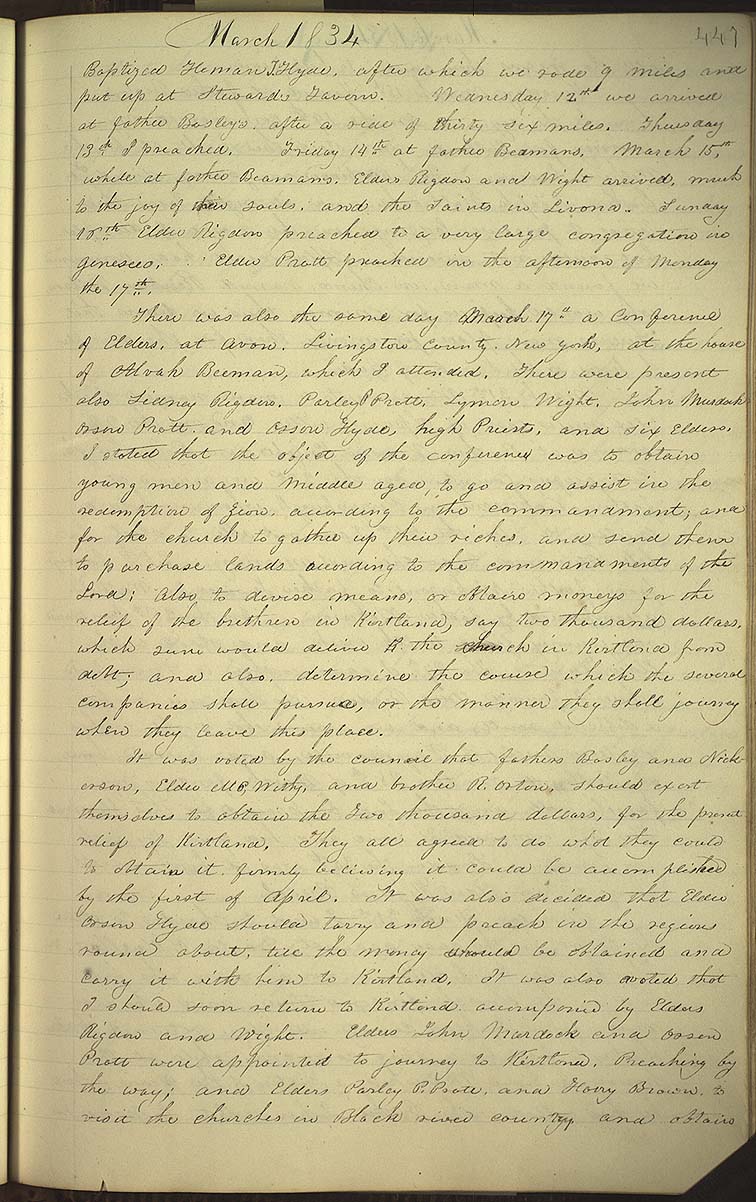 March 1834 447
Baptized Heman T. Hyde, after which we rode 9 miles and
put up at Stewards Tavern. Wednesday 12th we arrived
at father Bosley's. after a ride of thirty six miles. Thursday
13th I preached. Friday 14th at father Beamans. March 15th,
while at father Beamans. Elders Rigdon and Wight arrived, much
to the joy of their souls. and the Saints in Livona. Sunday
16th Elder Rigdon preached to a very large congregation in
Geneseo. Elder Pratt preached in the afternoon of Monday
the 17th.
There was also the same day March 17th a Conference
of Elders, at Avon. Livingston County. New york, at the house
of Alvah Beeman, which I attended. There were present
also Sidney Rigdon. Parley P Pratt. Lyman Wight. John Murdock
Orson Pratt. and Orson Hyde, high Priests, and six Elders.
I stated that the object of the conference was to obtain
young men and middle aged, to go and assist in the
redemption of Zion. according to the commandment; and
for the church to gather up their riches, and send them
to purchase lands acording to the commandments of the
Lord; Also to devise means, or obtain moneys for the
relief of the brethren in Kirtland, say two thousand dollars,
which sum would deliver the church in Kirtland from
debt; and also. determine the course which the several
companies shall pursue, or the manner they shall journey
when they leave this place.
It was voted by the council that fathers Bosley and Nick
erson, Elder Withy, and brother R. Orton, should exert
themselves to obtain the Two thousand dollars, for the present
relief of Kirtland. They all agreed to do what they could
to obtain it. firmly believing it could be accomplished
by the first of April. It was also decided that Elder
Orson Hyde should tarry and preach in the regions
round about, till the money should be obtained and
carry it with him to Kirtland. It was also voted that
I should soon return to Kirtland accompanied by Elders
Rigdon and Wight. Elders John Murdock and Orson
Pratt were appointed to journey to Kirtland, Preaching by
the way; and Elders Parley P. Pratt. and Harry Brown. to
visit the churches in Black river country and obtain